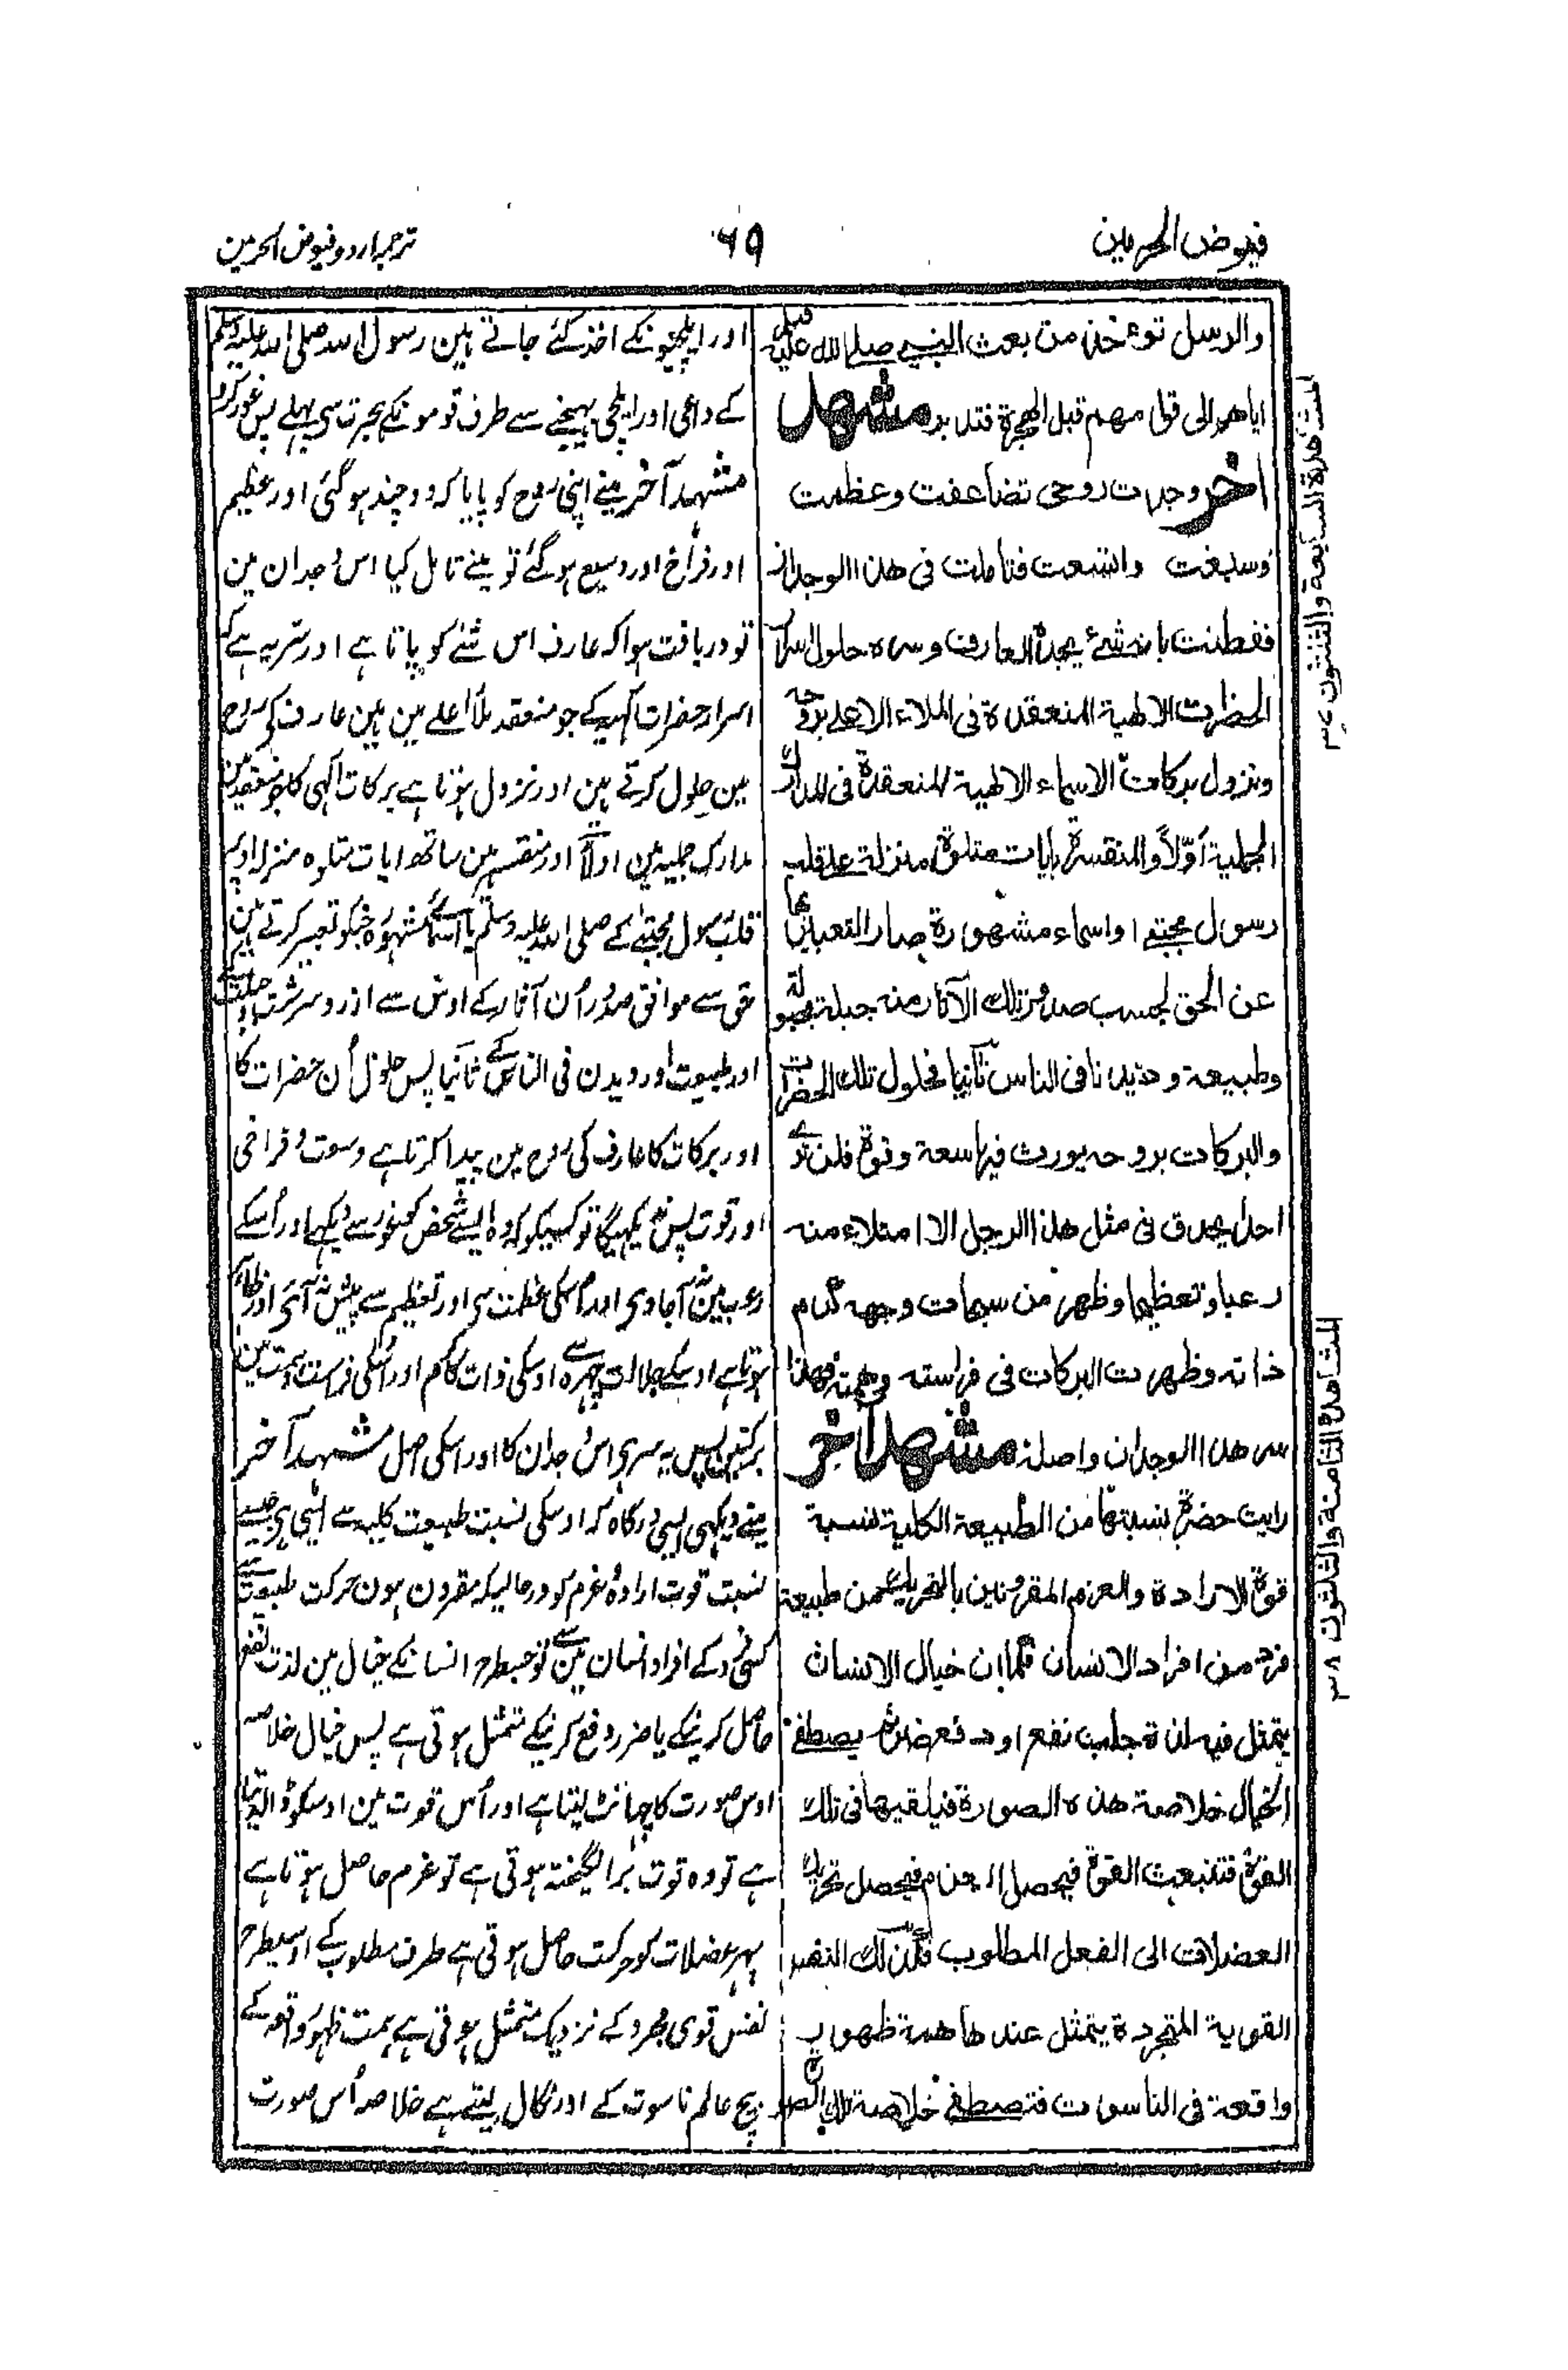 فيوض الحرمين
۶۹
ترجمہ اردو فیوض الحرمین
والرسل توءخذ من بعث النبي صلى الله عليه
اياهم الى قوامهم قبل الهجرة فتدبر مشهد
اخر وجدت روحى تضاعفت وعظمت
وسبغت واتسعت فتأملت فى هذا الوجدان
ففطنت بانه شئ يجده العارف وسره حلول اسرار
الحضرات الالهية المنعقدة فى الملاء الاعلى بروحه
ونزول بركات الاسماء الالهية المنعقدة فى المدارك
الجملية أوّلاً والمتقسرة بايات متلوة منزلة على قلب
رسول مجتبے اواسماء مشهورة صار التعبير بها
عن الحق بحسب صدور تلك الآثار منه جبلة مجبولة
وطبيعة وديدنا فى الناس ثانيا فحلول تلك الحضرات
والبركات بروحه يورث فيها سعة وقوة فلن ترے
احدا يحدق فى مثل هذا الرجل الا امتلاء منه
رعبا وتعظيما وظهر من سيماء وجهه كرم
ذاته وظهرت البركات فى فراسته وهمته فهذا
سر هذا الوجدان واصله مشهد اخر
رايت حضرة نسبتها من الطبيعة الكلية نسبة
قوة الارادة والعزم المقرونين بالتحريك من طبيعة
فرد من افراد الانسان فكما ان خيال الانسان
يتمثل فيه لذة جلب نفع او دفع ضرر فيصطفے
الخيال خلاصة هذه الصورة فيلقيها فى تلك
القوة فتنبعث القوة فيحصل العزم فيحصل تحريك
العضلات الى الفعل المطلوب فكذلك النفس
القوية المتجردة يتمثل عندها همة ظهور
واقعة فى الناسوت فتصطفے خلاصة تلك الصورة
اور ایلچیونکے اخذ کئے جاتے ہین رسول اللہ صلی اللہ علیہ وسلم
کے داعی اور ایلچی بھیجنے سے طرف قومونکے ہجرت سی پہلے پس غور کرو
مشہد آخر مینے اپنی روح کو پایا کہ دوچند ہوگئی اور عظیم
اور فراخ اور وسیع ہوگئے تو مینے تامل کیا اس وجدان مین
تو دریافت ہوا کہ عارف اس شئے کو پاتا ہے اور ستر یہ ہے کہ
اسرار حضرات الٰہیہ کے جو منعقد ملاء اعلے مین ہین عارف کی روح
مین حلول کرتے ہین اور نزول ہوتا ہے برکات الٰہی کا جو منعقد ہین
مدارک جملیہ مین اولاً اور منقسم ہین ساتھ ایات متلوہ منزلہ اوپر
قلب رسول مجتبےٰ کے صلی اللہ علیہ وسلم یا اسماء مشہورہ جنکو تعبیر کرتے ہین
حق سے موافق صدور اُن آثار کے اوس سے از رو سرشت
اور طبیعت اور دیدن فی الناس کے ثانیا پس حلول اُن حضرات کا
اور برکات کا عارف کی روح مین پیدا کرتا ہے وسعت و فراخی
اور قوت پس نہ دیکہیگا تو کسیکو کہ وہ ایسے شخص کو غور سے دیکہے اور اُسکے
رعب مین نہ آجاوی اور اُسکی عظمت سی اور تعظیم سے پیش نہ آئی اور ظاہر
ہوتا ہے اوسکے جلالت چہرہ سے اوسکی ذات کا کرم اور اُسکی فراست و ہمت مین
برکتین پس یہ سر ہی اس وجدان کا اور اسکی اصل مشہد آخر
مینے دیکہی ایسی درگاہ کہ اوسکی نسبت طبیعت کلیہ سے ایسی ہی جیسے
نسبت قوت ارادہ و عزم کو درحالیکہ مقرون ہون حرکت طبیعت سے
کسی فرد کے افراد انسان مین سے تو جسطرح انسانکے خیال مین لذت نفع
حاصل کرنیکے یا ضرر دفع کرنیکے متمثل ہوتی ہے پس خیال خلاصہ
اوس صورت کا چھانٹ لیتا ہے اور اُس قوت مین اوسکو ڈالدیتا
ہے تو وہ قوت برانگیختہ ہوتی ہے تو عزم حاصل ہوتا ہے
پہر عضلات کو حرکت حاصل ہوتی ہے طرف مطلوب کے اوسیطرح
نفس قوی مجرد کے نزدیک متمثل ہوتی ہے ہمت ظہور واقعہ کے
بیچ عالم ناسوت کے اور نکال لیتے ہے خلاصہ اُس صورت
المشاهدة السابعة والثلثون ۳۷
المشاهدة الثامنة والثلثون ۳۸